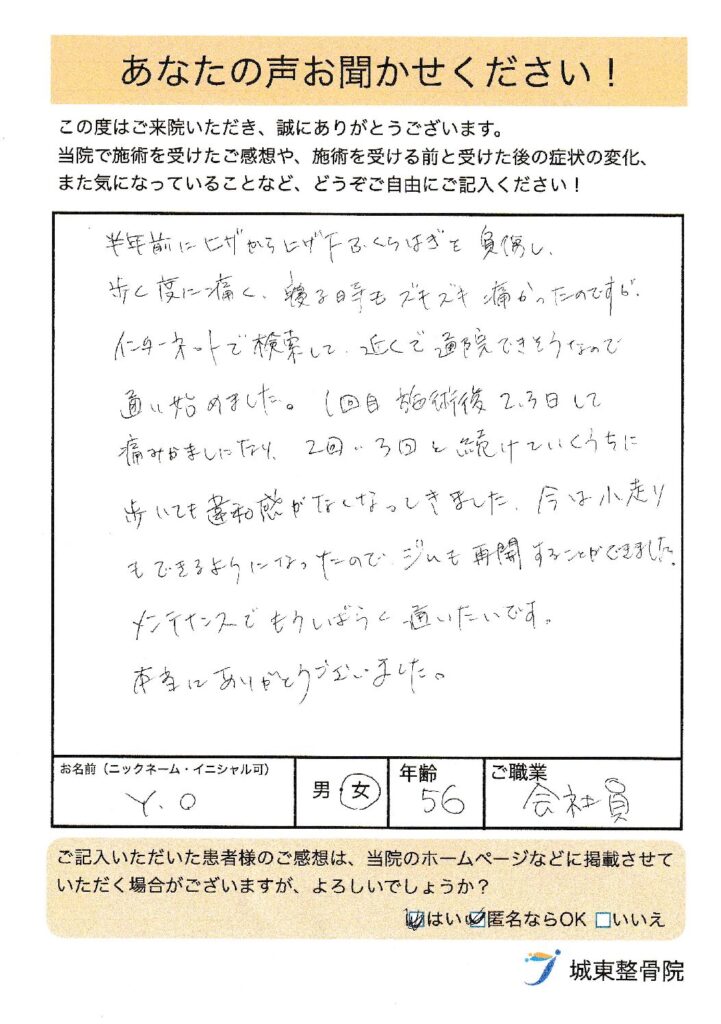 あなたの声お聞かせください！
この度はご来院いただき、誠にありがとうございます。
当院で施術を受けたご感想や、施術を受ける前と受けた後の症状の変化、
また気になっていることなど、どうぞご自由にご記入ください！
半年前にヒザからヒザ下ふくらはぎを負傷し、
歩く度に痛く、寝る時もズキズキ痛かったのですが、
インターネットで検索して、近くで通院できそうなので
通い始めました。1回目施術後2.3日して
痛みがましになり、2回、3回と続けていくうちに
歩いても違和感がなくなってきました、今は小走り
もできるようになったので、ジムも再開することができました。
メンテナンスでもうしばらく通いたいです。
本当にありがとうございました。
お名前（ニックネーム・イニシャル可）
Y.O
男 女
年齢
56
ご職業
会社員
ご記入いただいた患者様のご感想は、当院のホームページなどに掲載させて
いただく場合がございますが、よろしいでしょうか？
はい 匿名ならOK いいえ
城東整骨院